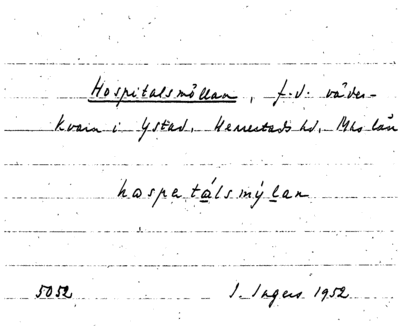 Hospitalsmöllan, f.d. väder-
kvarn i Ystad. Herrestads hd. Mhs län
haspetálsmýlan
5052 I. Ingers 1952